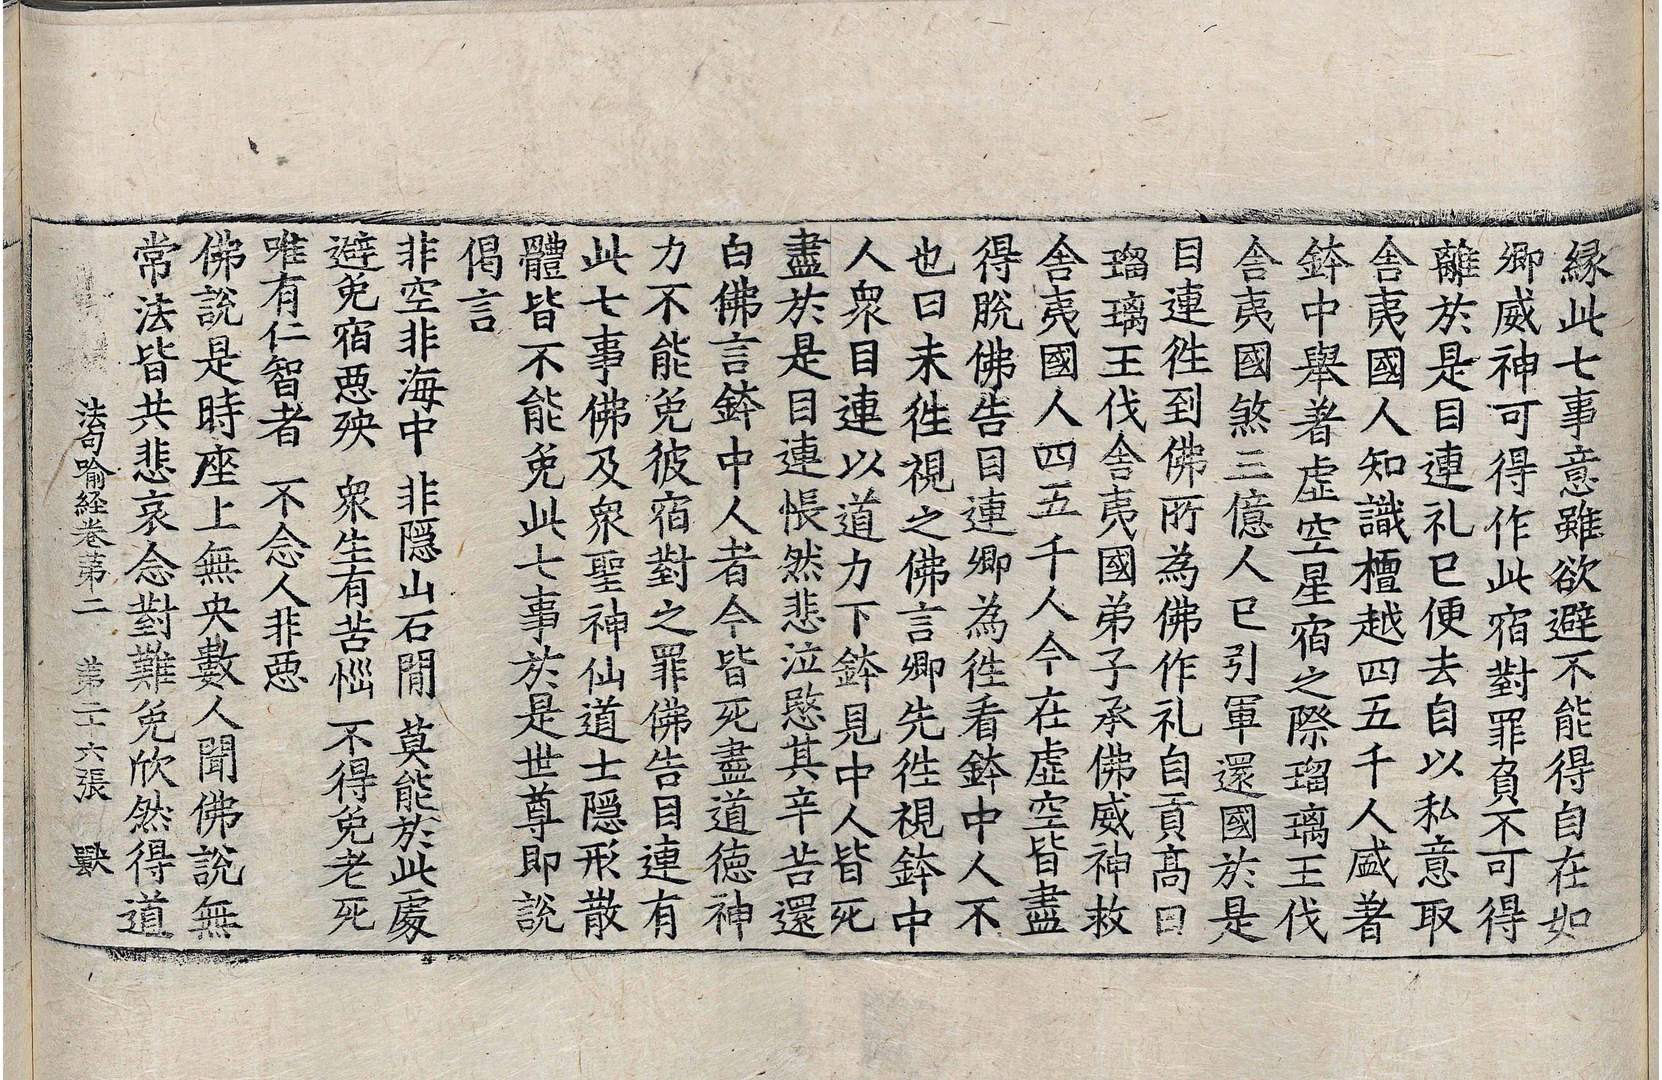 緣此七事意雖欲避不能得自在如
卿威神可得作此宿對罪負不可得
離於是目連礼已便去自以私意取
舍夷國人知識檀越四五千人盛著
鉢中舉著虛空星宿之際瑠璃王伐
舍夷國煞三億人已引軍還國於是
目連徃到佛所為佛作礼自貢高曰
瑠璃王伐舍夷國弟子承佛威神救
舍夷國人四五千人今在虛空皆盡
得脫佛告目連卿為徃看鉢中人不
也曰未徃視之佛言卿先徃視鉢中
人衆目連以道力下鉢見中人皆死
盡於是目連悵然悲泣愍其辛苦還
白佛言鉢中人者今皆死盡道德神
力不能免彼宿對之罪佛告目連有
此七事佛及衆聖神仙道士隱形散
體皆不能免此七事於是世尊即說
偈言
非空非海中 非隱山石閒 莫能於此處
避免宿惡殃 衆生有苦惱 不得免老死
唯有仁智者 不念人非惡
佛說是時座上無央數人聞佛說無
常法皆共悲哀念對難免欣然得道
法句喻經卷第二 第二十六張 獸